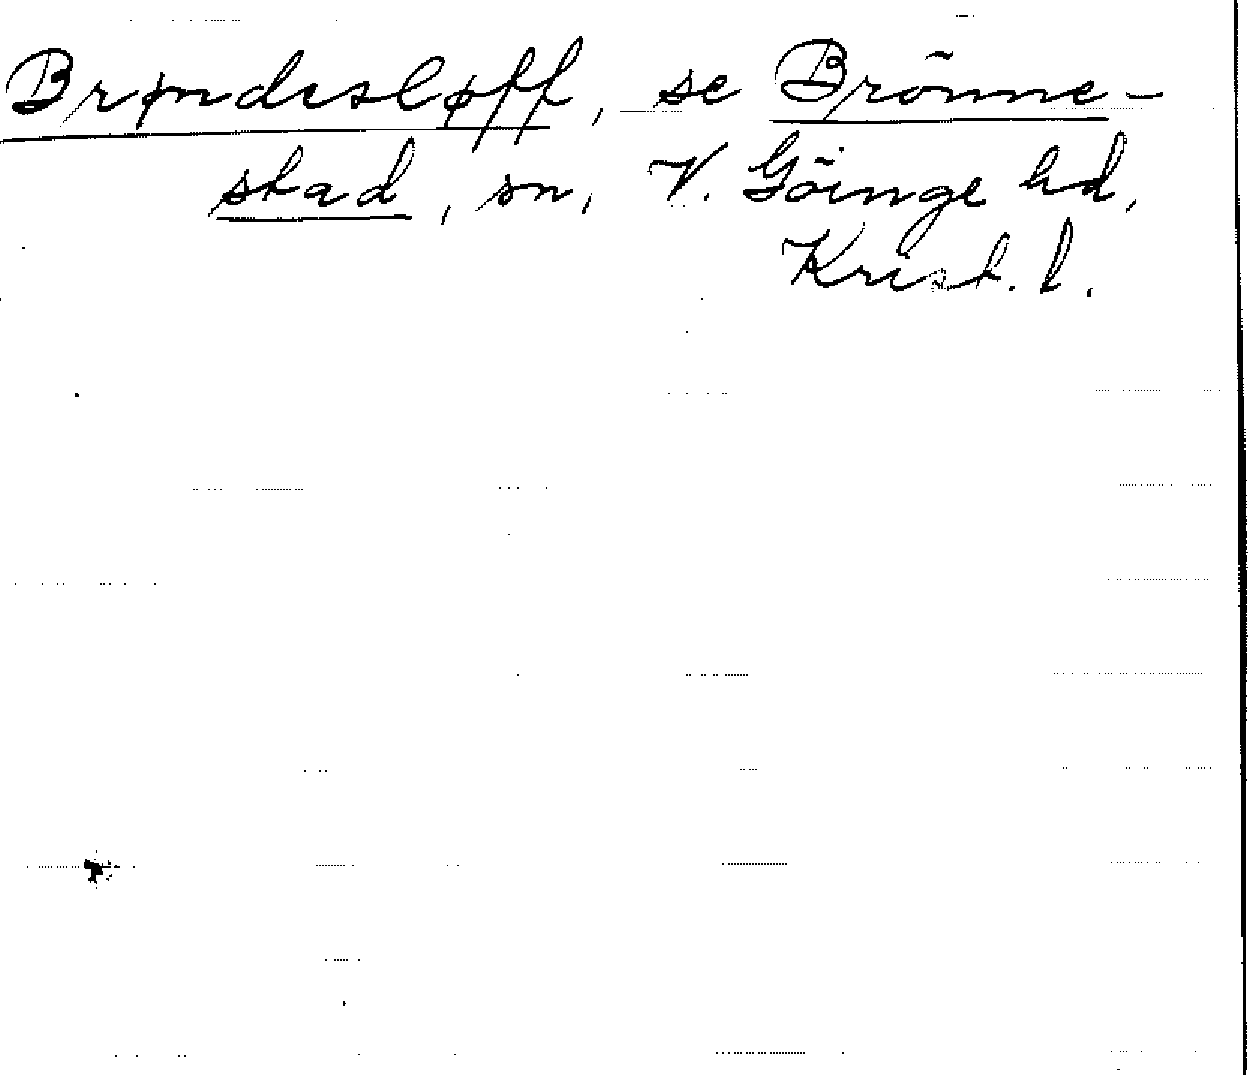 Brøndesløff, se Brönne-
stad, sn, V. Göinge hd,
Krist. l.